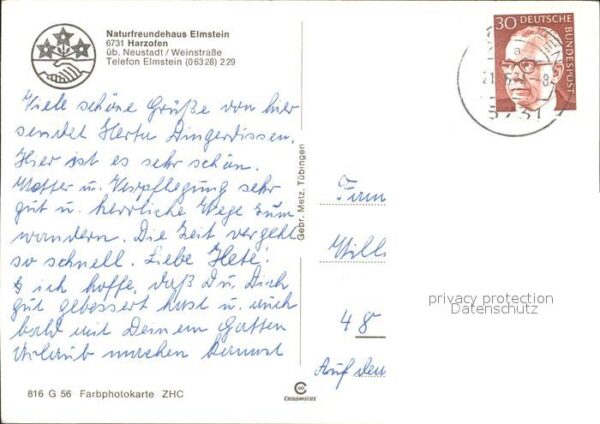 Naturfreundehaus Elmstein
6731 Harzofen
üb. Neustadt / Weinstraße
Telefon Elmstein (06328) 229
30 DEUTSCHE
BUNDESPOST
Viele schöne Grüße von hier
sendet Herta Dingerdissen.
Hier ist es sehr schön.
Wetter u. Verpflegung sehr
gut u. herrliche Wege zum
wandern. Die Zeit vergeht
so schnell. Liebe Hete!
ich hoffe, daß Du Dich
gut gebessert hast u. auch
bald mit Deinem Gatten
Urlaub machen kannst
Gebr. Metz, Tübingen
Fam
Will
48
Auf dem
privacy protection
Datenschutz
816 G 56 Farbphotokarte ZHC
CHROMOLUX